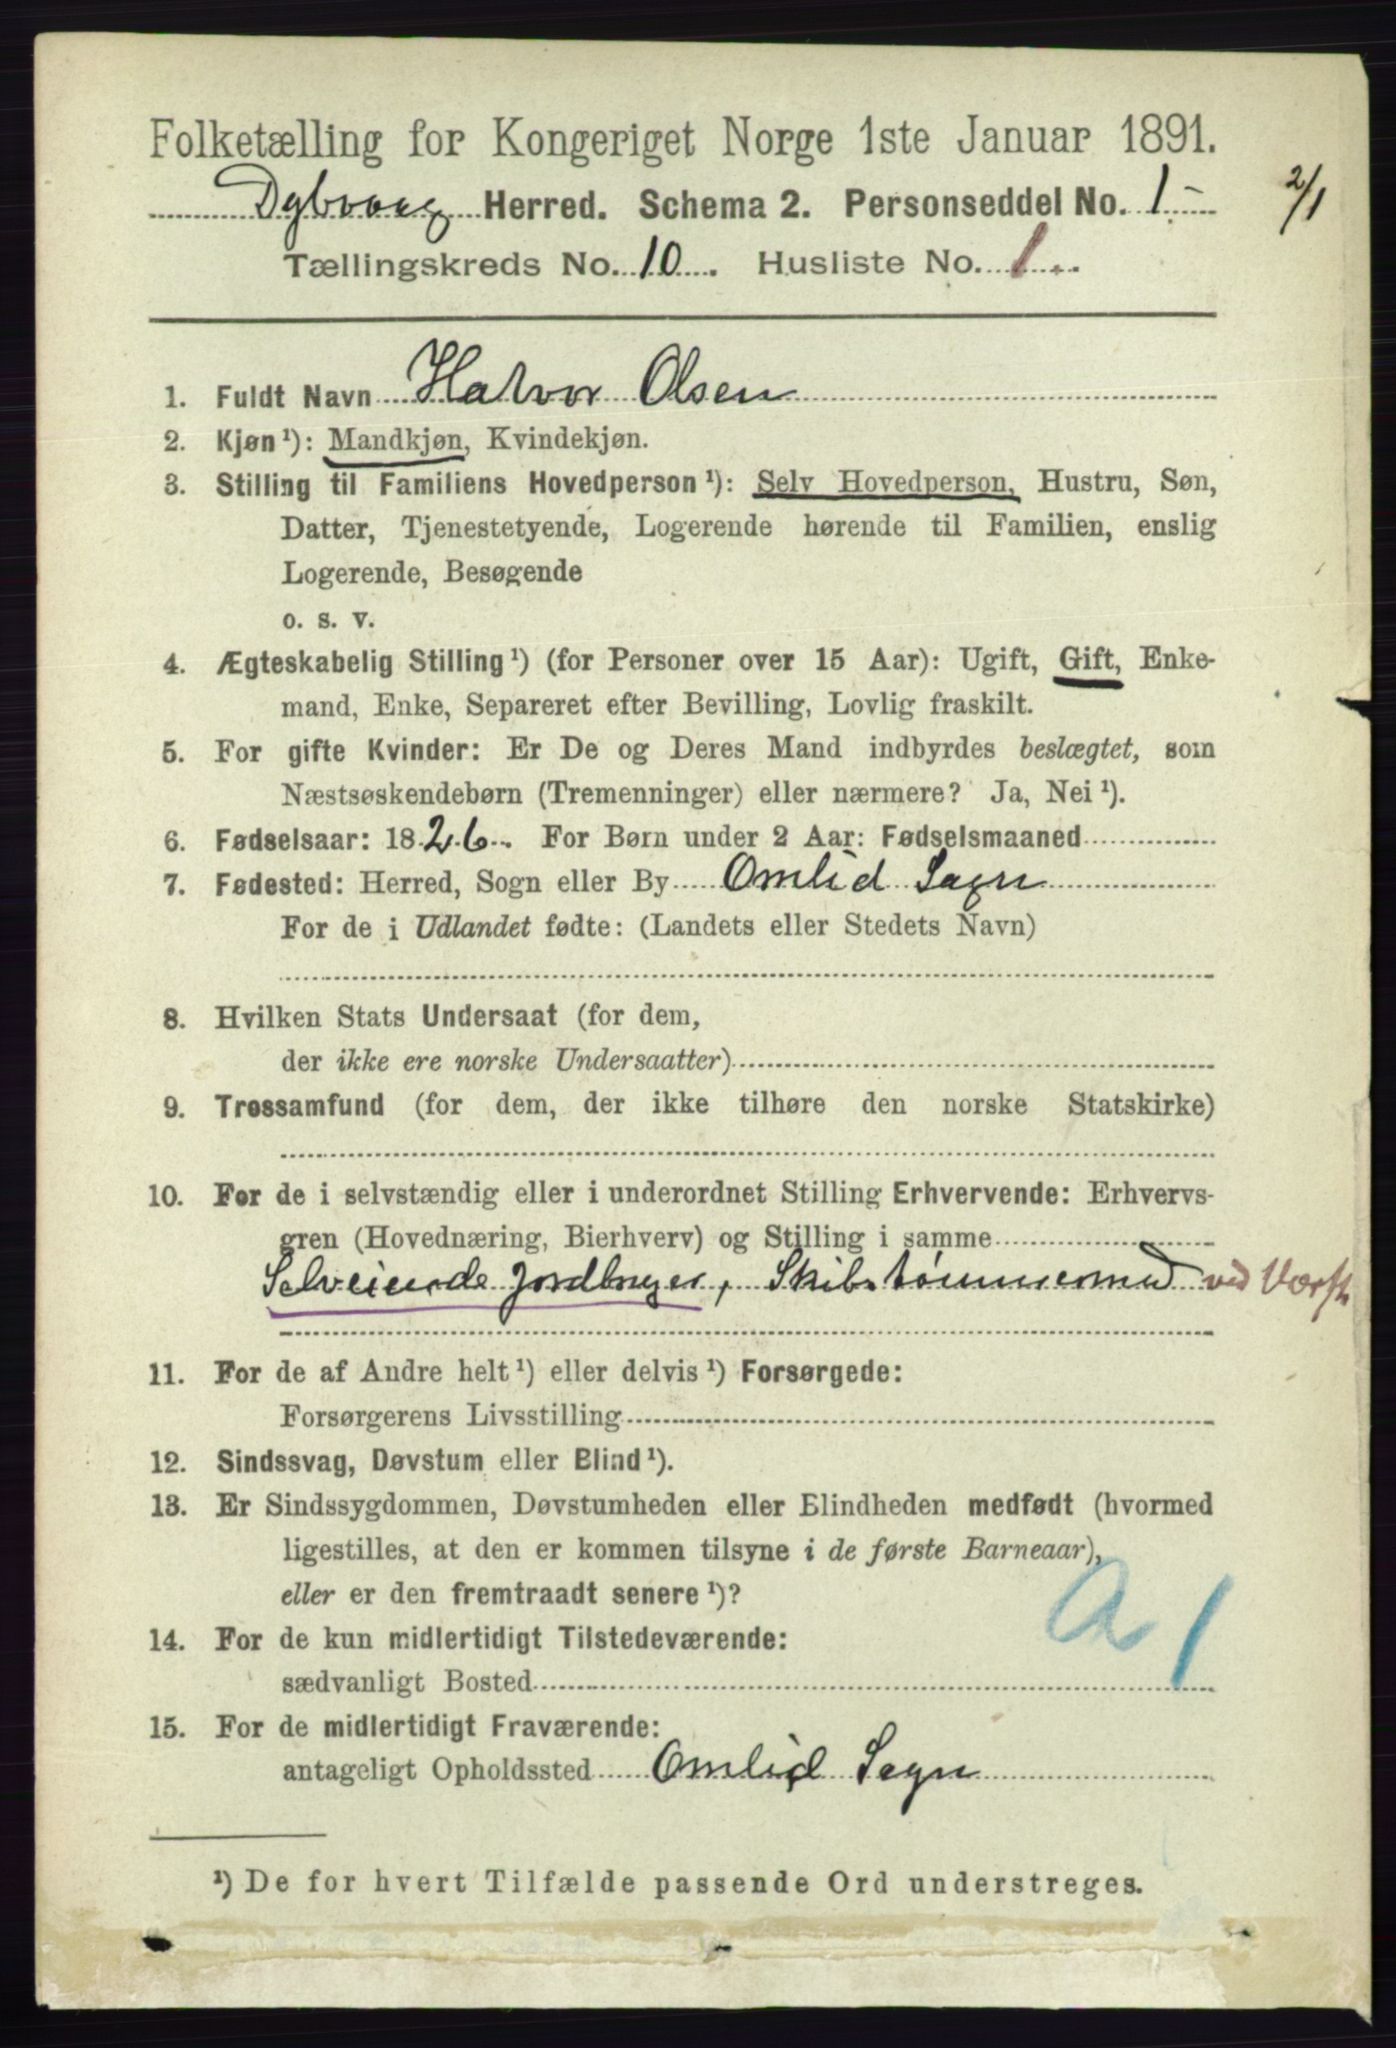 Folketælling for Kongeriget Norge 1ste Januar 1891.
Dybvaag Herred. Schema 2. Personseddel No. 1 - 2/1
Tællingskreds No. 10. Husliste No. 1.
1. Fuldt Navn Halvor Olsen
2. Kjøn ¹): Mandkjøn, Kvindekjøn.
3. Stilling til Familiens Hovedperson ¹): Selv Hovedperson, Hustru, Søn,
Datter, Tjenestetyende, Logerende hørende til Familien, enslig
Logerende, Besøgende
o. s. v.
4. Ægteskabelig Stilling ¹) (for Personer over 15 Aar): Ugift, Gift, Enke-
mand, Enke, Separeret efter Bevilling, Lovlig fraskilt.
5. For gifte Kvinder: Er De og Deres Mand indbyrdes beslægtet, som
Næstsøskendebørn (Tremenninger) eller nærmere? Ja, Nei ¹).
6. Fødselsaar: 1826. For Børn under 2 Aar: Fødselsmaaned
7. Fødested: Herred, Sogn eller By Omlid Sogn
For de i Udlandet fødte: (Landets eller Stedets Navn)
8. Hvilken Stats Undersaat (for dem,
der ikke ere norske Undersaatter)
9. Trossamfund (for dem, der ikke tilhøre den norske Statskirke)
10. For de i selvstændig eller i underordnet Stilling Erhvervende: Erhvervs-
gren (Hovednæring, Bierhverv) og Stilling i samme
Selveiende Jordbruger, Skibstømmermd ved Værft
11. For de af Andre helt ¹) eller delvis ¹) Forsørgede:
Forsørgerens Livsstilling
12. Sindssvag, Døvstum eller Blind ¹).
13. Er Sindssygdommen, Døvstumheden eller Blindheden medfødt (hvormed
ligestilles, at den er kommen tilsyne i de første Barneaar),
eller er den fremtraadt senere ¹)?
a 1
14. For de kun midlertidigt Tilstedeværende:
sædvanligt Bosted
15. For de midlertidigt Fraværende:
antageligt Opholdssted Omlid Sogn
¹) De for hvert Tilfælde passende Ord understreges.